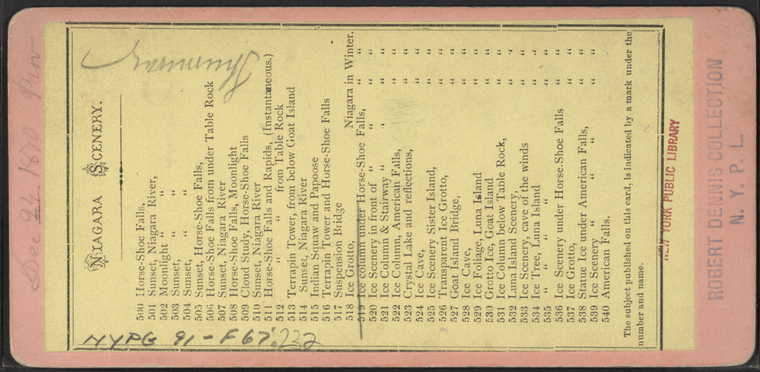 NIAGARA SCENERY.
500 Horse-Shoe Falls,
501 Sunset, Niagara River,
502 Moonlight " "
503 Sunset, " "
504 Sunset, " "
505 Sunset, Horse-Shoe Falls,
506 Horse-Shoe Falls from under Table Rock
507 Sunset, Niagara River
508 Horse-Shoe Falls, Moonlight
509 Cloud Study, Horse-Shoe Falls
510 Sunset, Niagara River
511 Horse-Shoe Falls and Rapids, (Instantaneous.)
512 " " from Table Rock
513 Terrapin Tower, from below Goat Island
514 Sunset, Niagara River
515 Indian Squaw and Papoose
516 Terrapin Tower and Horse-Shoe Falls
517 Suspension Bridge
518 Ice Grotto, Niagara in Winter.
519 Ice column under Horse-Shoe Falls, " "
520 Ice Scenery in front of " " " "
521 Ice Column & Stairway " " " "
522 Ice Column, American Falls, " "
523 Crystal Lake and reflections, " "
524 Ice Cave, " "
525 Ice Scenery Sister Island, " "
526 Transparent Ice Grotto, " "
527 Goat Island Bridge, " "
528 Ice Cave, " "
529 Ice Foliage, Luna Island " "
530 Grotto Ice, Goat Island " "
531 Ice Column below Table Rock, " "
532 Luna Island Scenery, " "
533 Ice Scenery, cave of the winds " "
534 Ice Tree, Luna Island " "
535 " " " " " "
536 Ice Scenery under Horse-Shoe Falls " "
537 Ice Grotto, " "
538 Statue Ice under American Falls, " "
539 Ice Scenery " " " " "
540 American Falls. " "
The subject published on this card, is indicated by a mark under the
number and name.
NYPG 91-F67.232
Dec 24 1870
NEW YORK PUBLIC LIBRARY
ROBERT DENNIS COLLECTION
N. Y. P. L.